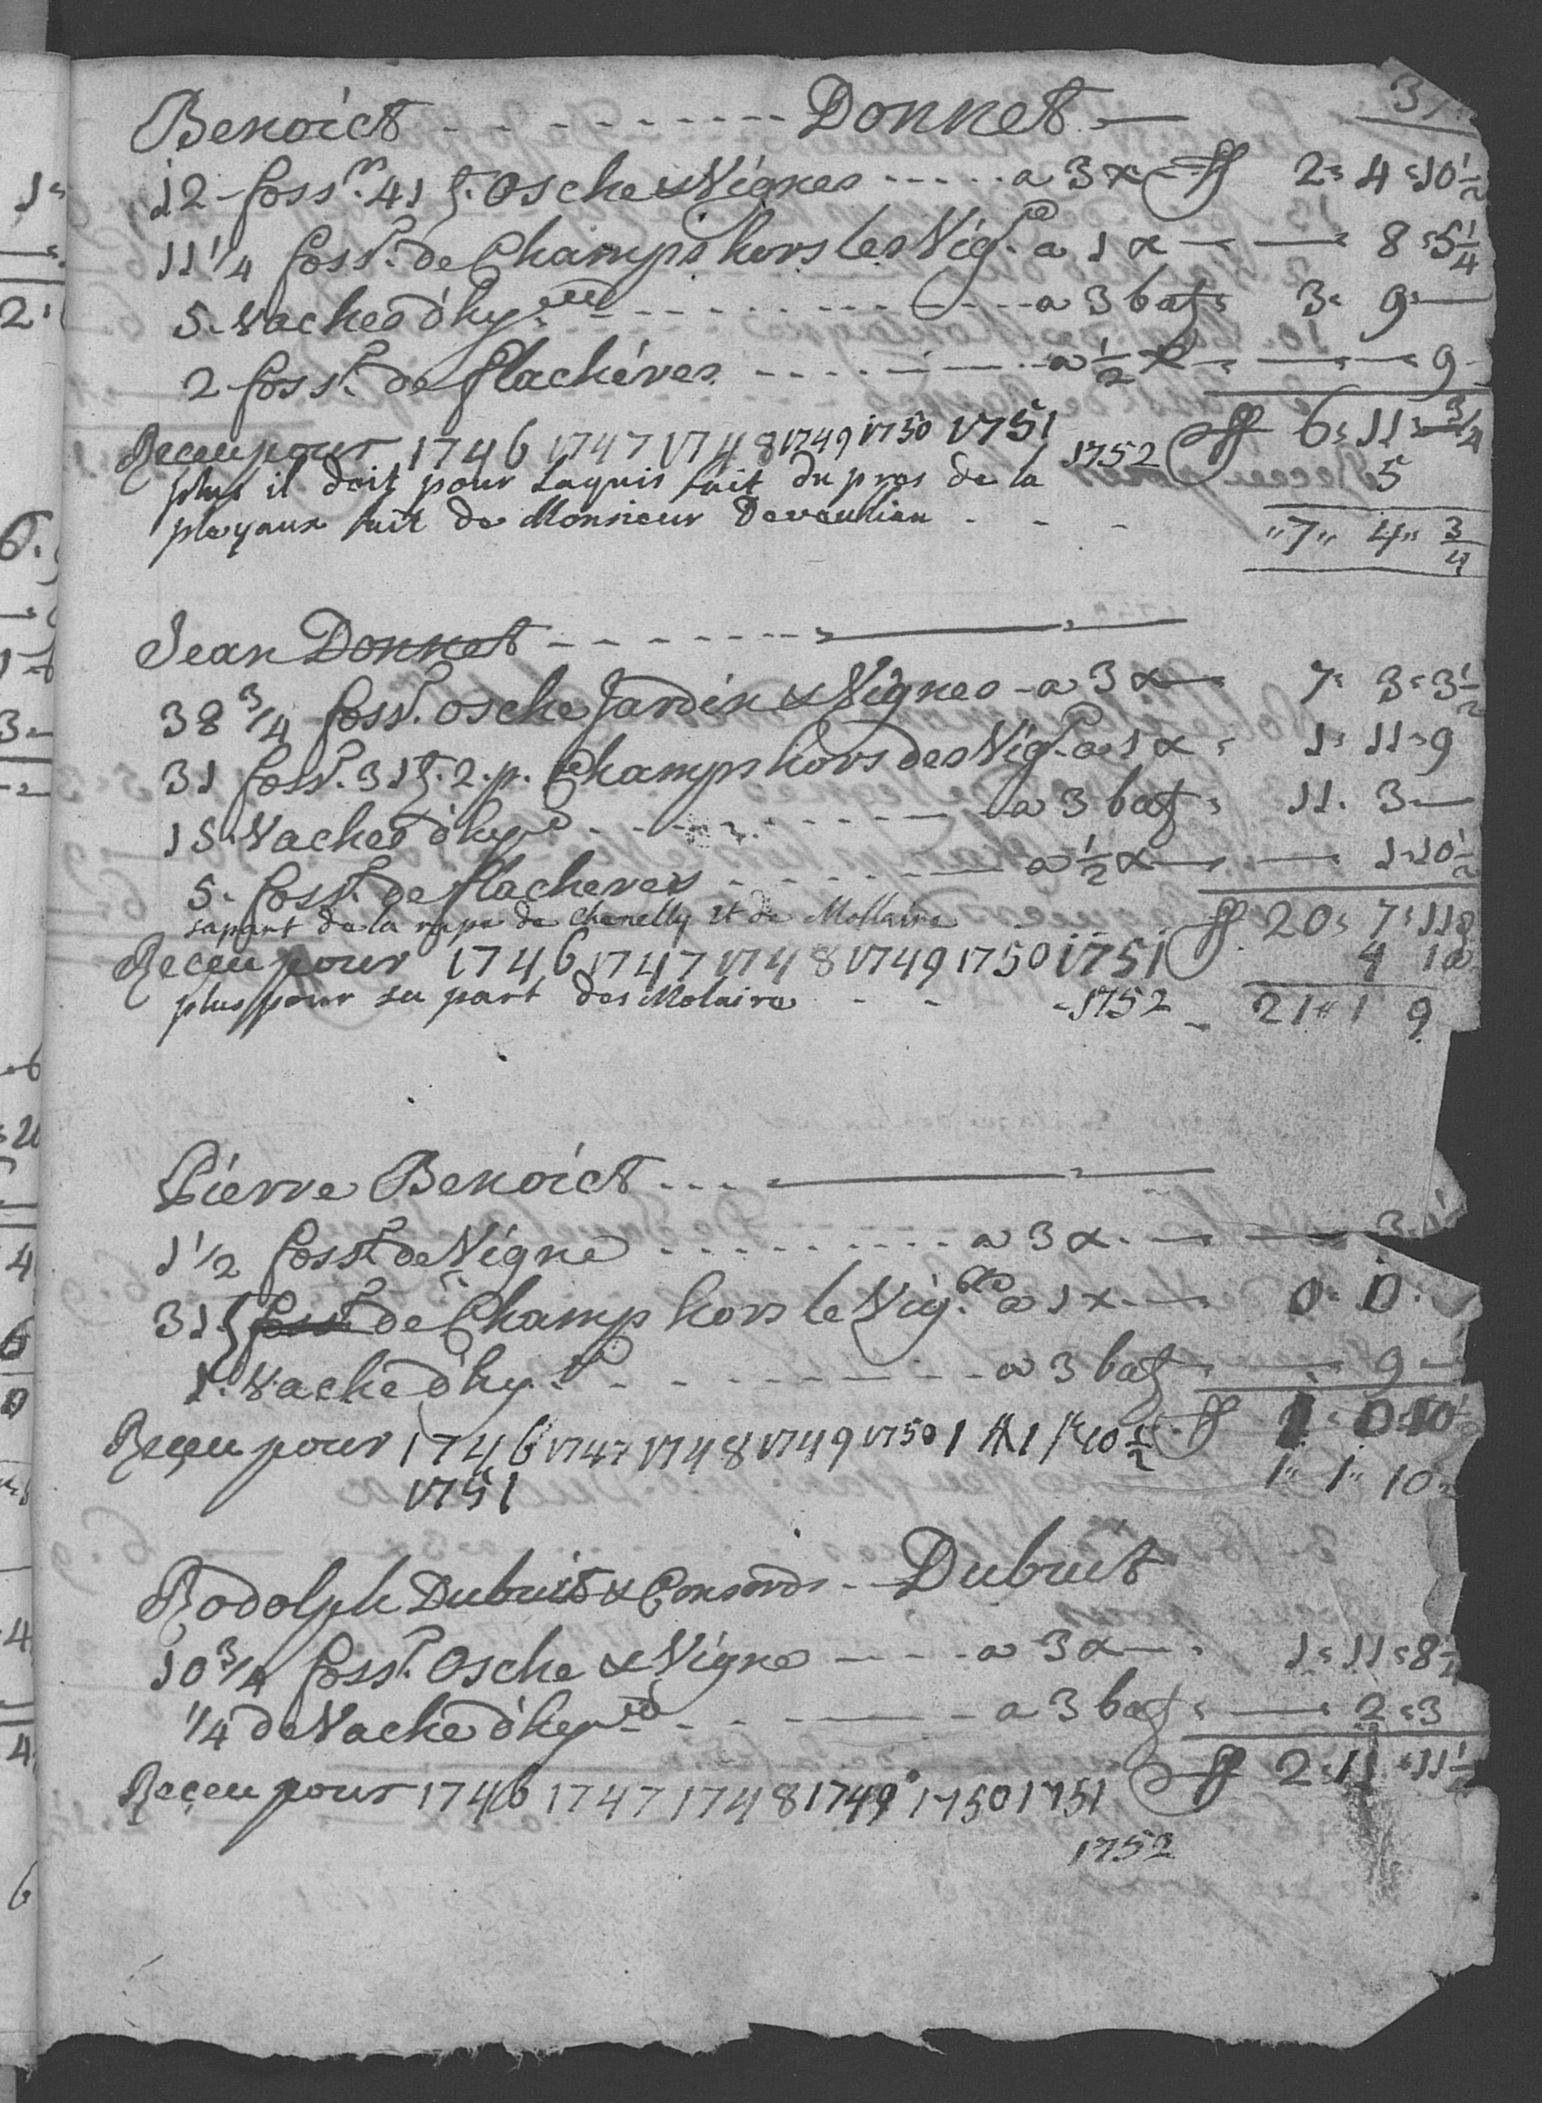 Benoict - - - - - - - - - - Donnet. —
12 foss.rs 41 t. Osche & Vignes - - - - - a 3 x ff 2 : 4 : 10 1/2
11 1/4 foss.r de Champs hors les Vig. a 1 x — — 8 : 5 1/4
5. Vaches d'hy - - - - - - - - - - a 3 batz : 3 : 9 : —
2 foss.r de flachéres - - - - - - - a 1/2 x — — 9 -
Reçeu pour 1746 1747 1748 1749 1750 1751 1752 ff 6 : 11 : 3/4
plus il doit pour Laquis fait du pras de la 5
playaux fait de Monsieur - - - " 7 " 4 " 3/4
Jean Donnet - - - - - - - —
38 3/4 foss.r Osche Jardin & Vignes - a 3 x — 7 : 3 : 3 1/2
31 foss.r 31 t. 2. p. Champs hors des Vig. a 1 x : 1 : 11 : 9
15. Vaches d'hy - - - - - - - - a 3 batz : 11 . 3 —
5. foss.r de flacheres - - - - - - a 1/2 x — — 1 : 10 1/2
sapart de la rape de Chenelly et de Mollaire
Reçeu pour 1746 1747 1748 1749 1750 1751 ff 20 : 7 : 11
4 10
plus pour sa part des Molaire - - - 1752 - 21 " 1 9
Pierre Benoict - - - —
1 1/2 foss.r de Vigne - - - - - - - - a 3 x . — — 3
31 t foss.r de Champ hors le Vig. a 1 x . — 0 : 0 :
1. Vache d'hy - - - - - - - - - a 3 batz . — 9 —
Reçeu pour 1746 1747 1748 1749 1750 1 ff 1 10 1/2 ff 1 : 0 : 10
1751 1 " 1 " 10
Rodolph Dubuit & Consords - Dubuit
10 3/4 foss.r Osche & Vigne - - - - a 3 x — 1 : 11 : 8
1/4 de Vache d'hy - - - - - - a 3 batz : — 2 : 3
Reçeu pour 1746 1747 1748 1749 1750 1751 ff 2 : 1 : 11 1/2
1752